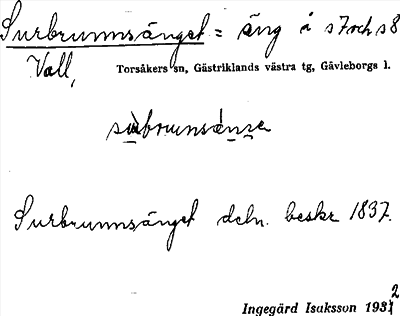 Surbrunnsänget = äng å s7 och s8
Vall,
Torsåkers sn, Gästriklands västra tg, Gävleborgs l.
Surbrunnsänget deln. beskr 1837.
Ingegärd Isaksson 1932